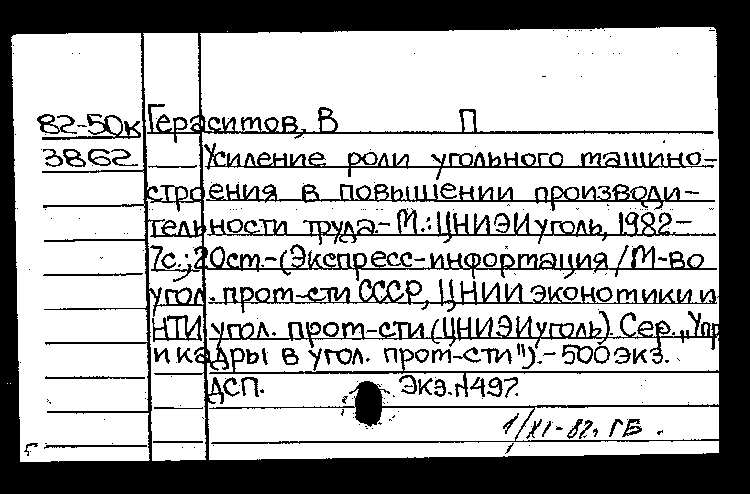 82-50к Герасимов, В П
3862 Усиление роли угольного машино-
строения в повышении производи-
тельности труда.- М.: ЦНИЭИуголь, 1982.-
7с.; 20см.-(Экспресс-информация/М-во
угол. пром-сти СССР, ЦНИИ экономики и
НТИ угол. пром-сти (ЦНИЭИуголь). Сер. „Упр
и кадры в угол. пром-сти").- 500 экз.
ДСП. Экз. №497.
1/XI-82. ГБ.